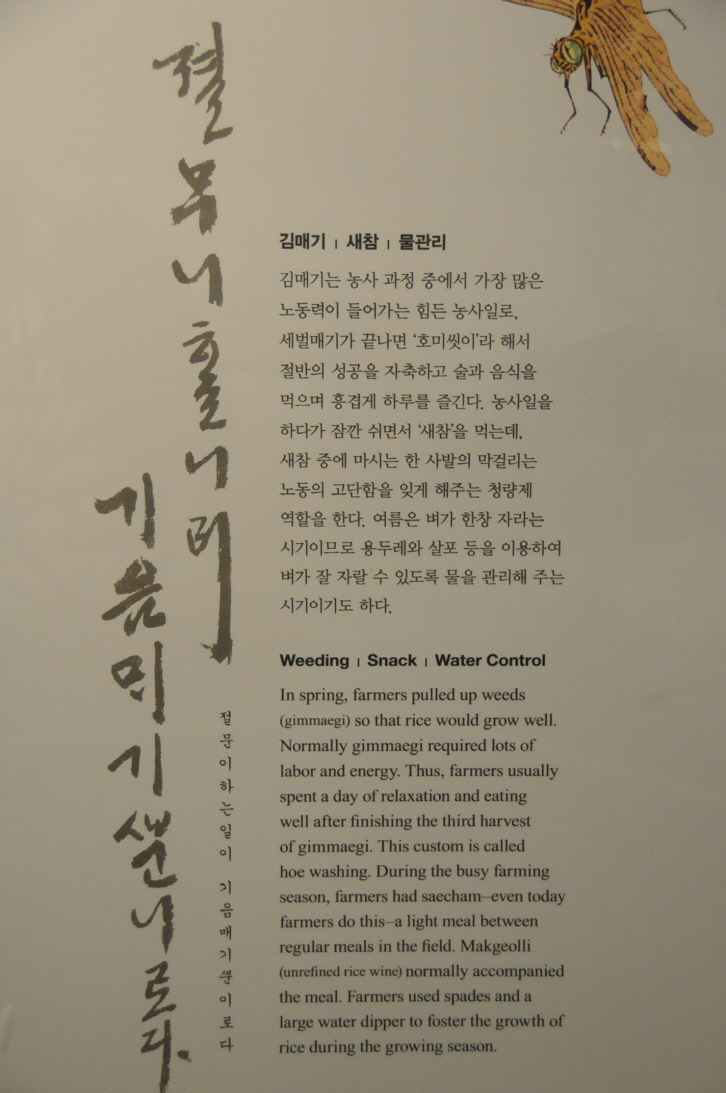 졀무니흘니리
기음ᄆᆡ기ᄲᅮᆫ니로다.
절문이하는일이 기음매기ᄲᅮᆫ이로다
김매기 | 새참 | 물관리
김매기는 농사 과정 중에서 가장 많은
노동력이 들어가는 힘든 농사일로,
세벌매기가 끝나면 ‘호미씻이’라 해서
절반의 성공을 자축하고 술과 음식을
먹으며 흥겹게 하루를 즐긴다. 농사일을
하다가 잠깐 쉬면서 ‘새참’을 먹는데,
새참 중에 마시는 한 사발의 막걸리는
노동의 고단함을 잊게 해주는 청량제
역할을 한다. 여름은 벼가 한창 자라는
시기이므로 용두레와 살포 등을 이용하여
벼가 잘 자랄 수 있도록 물을 관리해 주는
시기이기도 하다.
Weeding | Snack | Water Control
In spring, farmers pulled up weeds
(gimmaegi) so that rice would grow well.
Normally gimmaegi required lots of
labor and energy. Thus, farmers usually
spent a day of relaxation and eating
well after finishing the third harvest
of gimmaegi. This custom is called
hoe washing. During the busy farming
season, farmers had saecham–even today
farmers do this–a light meal between
regular meals in the field. Makgeolli
(unrefined rice wine) normally accompanied
the meal. Farmers used spades and a
large water dipper to foster the growth of
rice during the growing season.